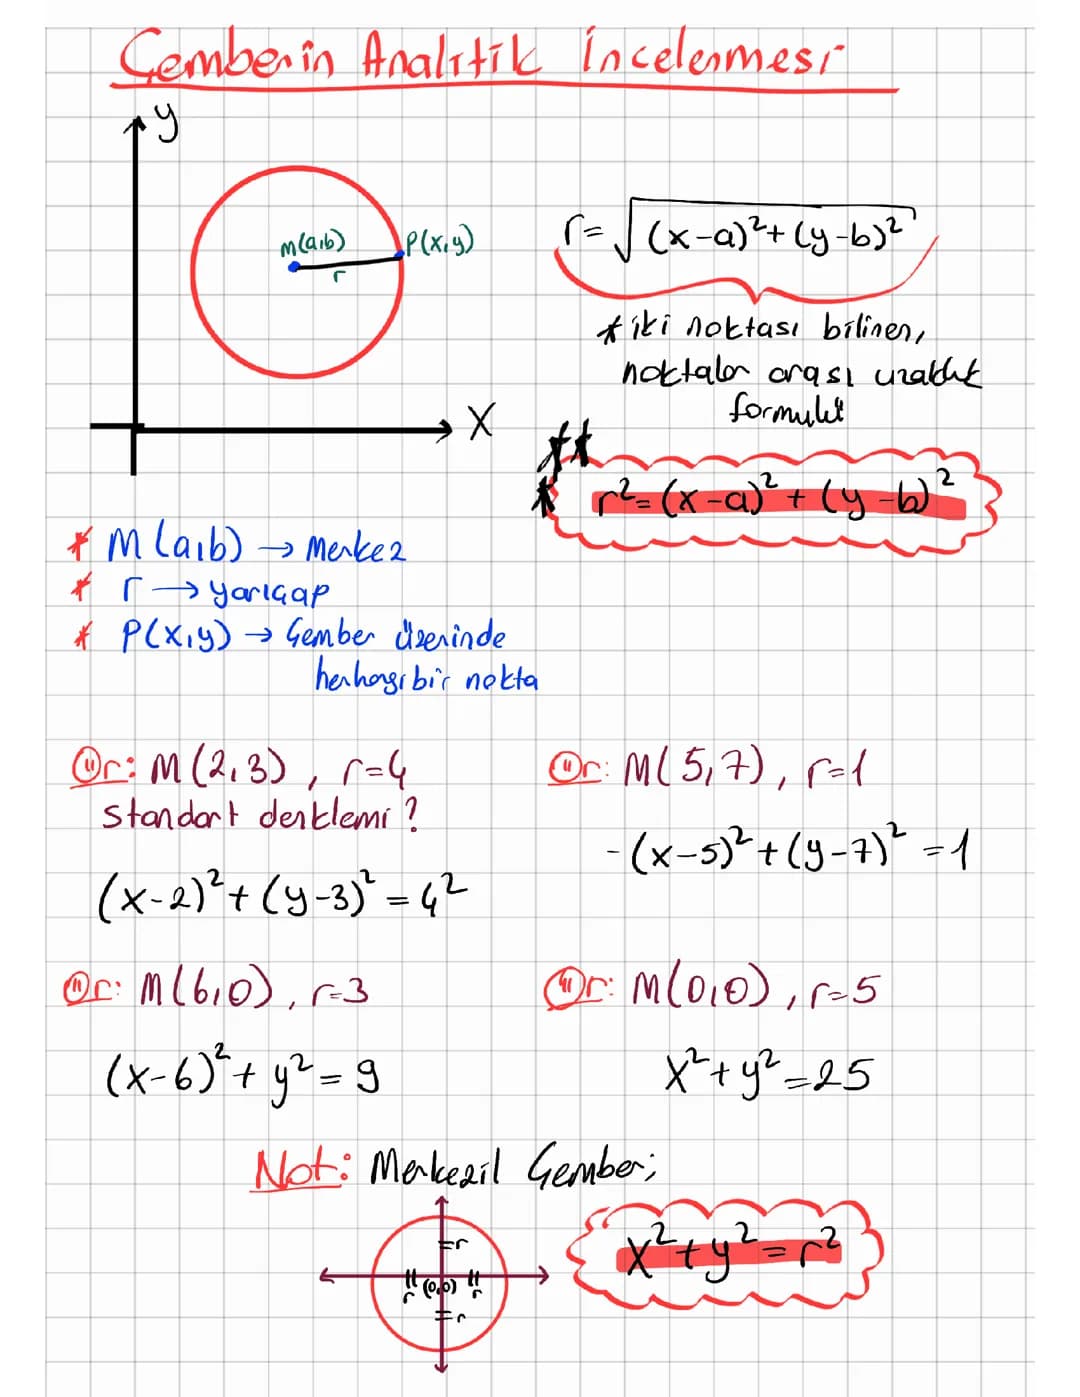 Çemberin Analitik İncelenmesi
y
M(a,b)
P(x,y)
r
x
r=√(x-a)²+(y-b)²
* iki noktası bilinen,
noktalar arası uzaklık
formülü
*** r²=(x-a)²+(y-b)²
* M(a,b) → Merkez
* r → yarıçap
* P(x,y) → Çember üzerinde
herhangi bir nokta
Ör: M(2,3), r=4
standart denklemi?
(x-2)²+(y-3)²=4²
Ör: M(5,7), r=1
-(x-5)²+(y-7)²=1
Ör: M(6,0), r=3
(x-6)²+y²=9
Ör: M(0,0), r=5
x²+y²=25
Not: Merkezil Çember;
=r
= r (0,0) = r
=r
x²+y²=r²